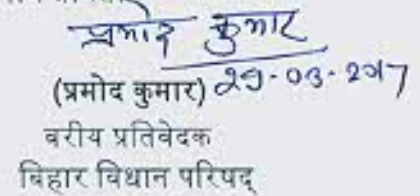 प्रमोद कुमार
(प्रमोद कुमार) 29-03-2017
वरीय प्रतिवेदक
बिहार विधान परिषद्